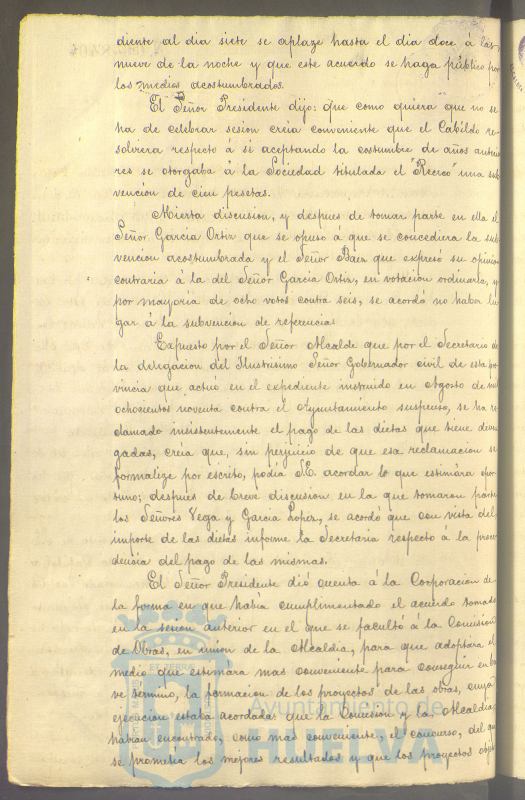 diente al dia siete se aplaze hasta el dia doce á las
nueve de la noche y que este acuerdo se haga público por
los medios acostumbrados.
El Señor Presidente dijo: que como quiera que no se
ha de celebrar sesion creia conveniente que el Cabildo re-
solviera respecto á si aceptando la costumbre de años anterio
res se otorgaba á la Sociedad titulada el "Recreo" una sub
vención de cien pesetas.
Abierta discusion, y despues de tomar parte en ella el
Señor Garcia Ortiz que se opuso á que se concediera la sub
vencion acostumbrada y el Señor Baer que expresó su opinion
contraria á la del Señor Garcia Ortiz, en votacion ordinaria, y
por mayoria de ocho votos contra seis, se acordó no haber lu
gar á la subvencion de referencia.
Expuesto por el Señor Alcalde que por el Secretario de
la delegacion del Ilustrisimo Señor Gobernador civil de esta pro
vincia que actuó en el expediente instruido en Agosto de mil
ochocientos noventa contra el Ayuntamiento suspenso, se ha re
clamado insistentemente el pago de las dietas que tiene deven
gadas, creia que, sin perjuicio de que esa reclamacion se
formalize por escrito, podia S.E. acordar lo que estimára opor
tuno; despues de breve discusion en la que tomaron parte
los Señores Vega y Garcia Lopez, se acordó que con vista del
importe de las dietas informe la Secretaria respecto á la proce
dencia del pago de las mismas.
El Señor Presidente dió cuenta á la Corporacion de
la forma en que habia cumplimentado el acuerdo tomado
en la sesion anterior en el que se facultó á la Comision
de Obras, en union de la Alcaldia, para que adoptára el
medio que estimara mas conveniente para conseguir en bre
ve término, la formacion de los proyectos de las obras, cuya
ejecucion estaba acordada: que la Comision y la Alcaldia
habian encontrado, como mas conveniente, el concurso, del que
se prometia los mejores resultados y que los proyectos
Ayuntamiento de
HUELVA